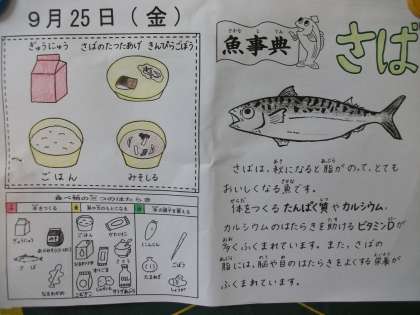 9月25日（金）
ぎゅうにゅう　さばのたつたあげ　きんぴらごぼう
ごはん　みそしる
食べ物の三つのはたらき
体をつくる
ごはん
さば
にんじん
ごぼう
たまねぎ
魚事典
さば
さばは、秋になると脂がのって、とても
おいしくなる魚です。
体をつくるたんぱく質やカルシウム、
カルシウムのはたらきを助けるビタミンDが
多くふくまれています。また、さばの
脂には、脳や目のはたらきをよくする栄養が
ふくまれています。